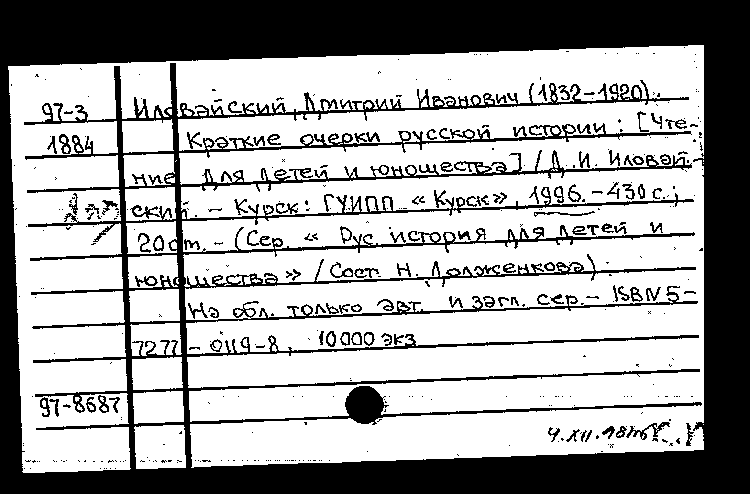 97-3 Иловайский, Дмитрий Иванович (1832-1920).
1884 Краткие очерки русской истории: [Чте-
ние для детей и юношества] / Д.И. Иловай-
ский. - Курск: ГУИПП «Курск», 1996. - 430 с.;
20 cm. - (Сер. «Рус. история для детей и
юношества» / Сост. Н. Долженкова).
На обл. только авт. и загл. сер. - ISBN 5-
7277-0119-8, 10000 экз
97-8687
4.XII.98